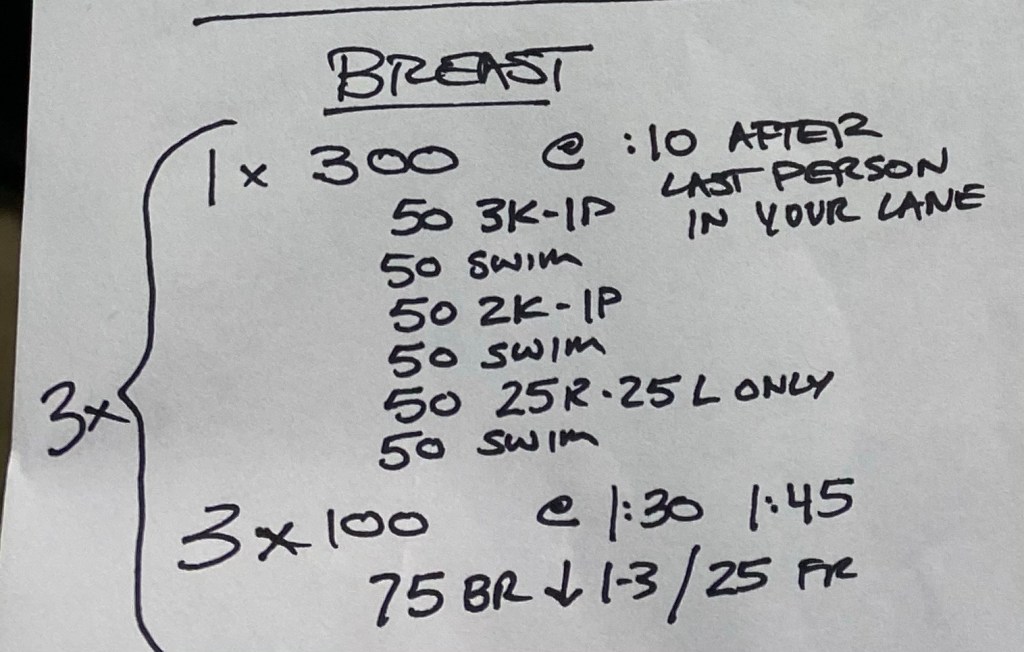 BREAST
1 x 300 @ :10 AFTER
LAST PERSON
IN YOUR LANE
50 3K-1P
50 SWIM
50 2K-1P
50 SWIM
50 25R·25L ONLY
50 SWIM
3x
3 x 100 @ 1:30 1:45
75 BR ↓ 1-3 / 25 FR